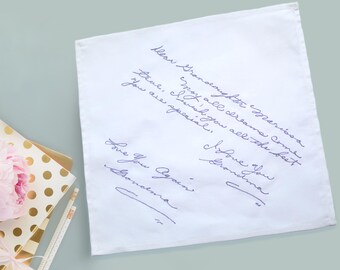 Dear Granddaughter Marissa
May all dreams come
true, I wish you all the best
You are special.
I Love You
Grandma
Love You Again
Grandma